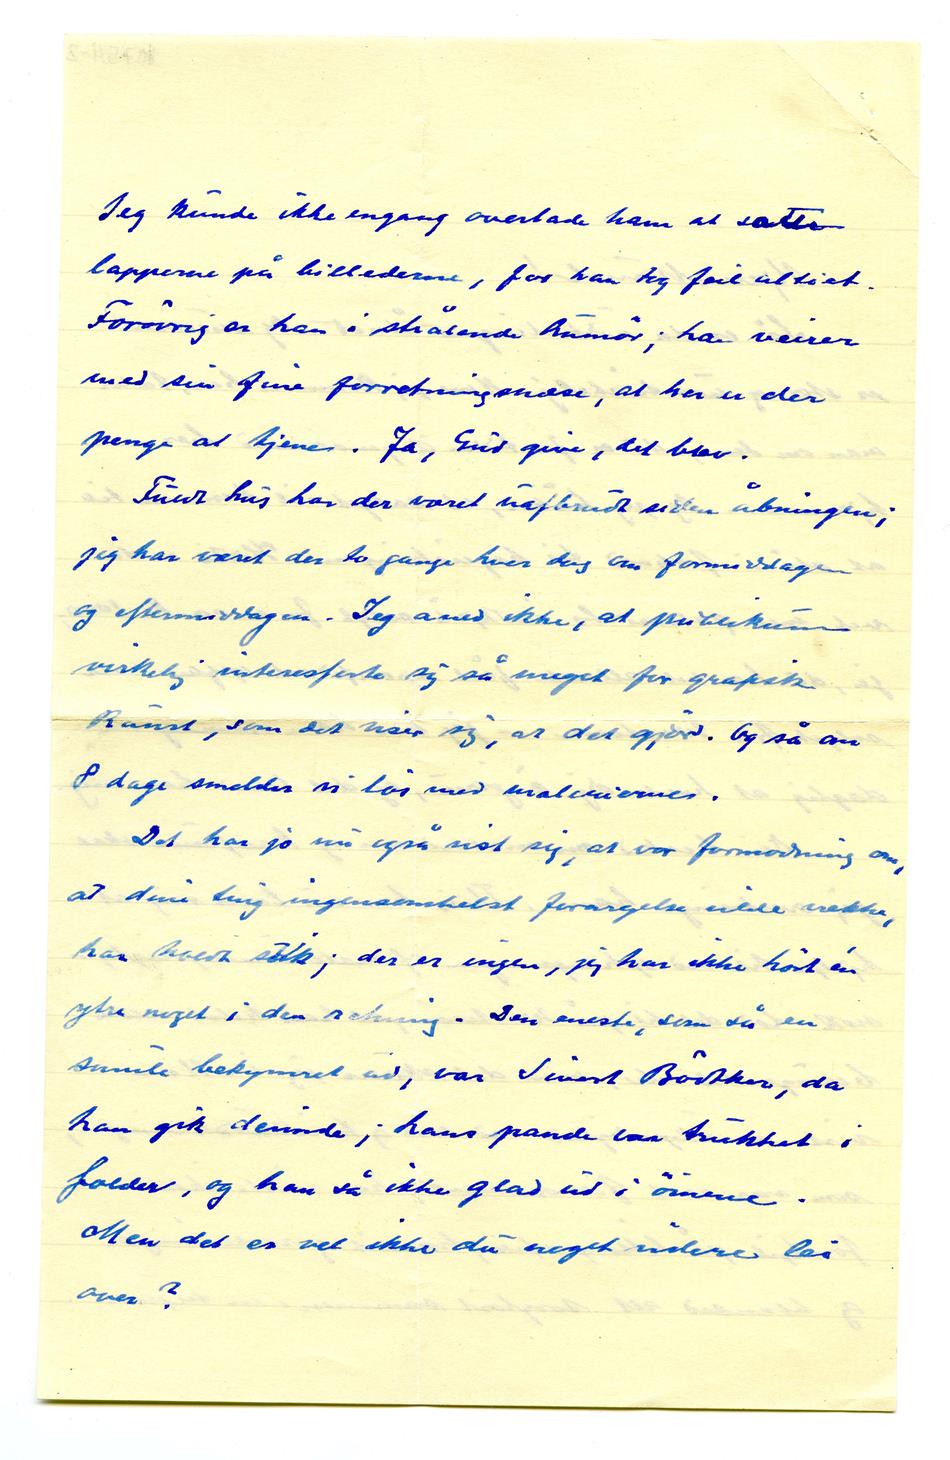 Jeg kunde ikke engang overlade ham at sætte
lapperne på billederne, for han tog feil altid.
Forövrig er han i strålende humör; han veirer
med sin fine forretningsnæse, at her er der
penge at tjene. Ja, Gud give, det blev.
Fuldt hus har der været uafbrudt siden åbningen;
jeg har været der to gange hver dag om formiddagen
og eftermiddagen. Jeg aned ikke, at publikum
virkelig interesserte sig så meget for grafisk
Kunst, som det viser sig, at det gjör. Og så om
8 dage smelder vi lös med malerierne.
Det har jo nu også vist sig, at vor formodning om,
at dine ting ingensomhelst forargelse vilde vække,
har holdt stik; der er ingen, jeg har ikke hört én
ytre noget i den retning. Den eneste, som så en
smule bekymret ud, var Sivert Bödtker, da
han gik derinde; hans pande var trukket i
folder, og han så ikke glad ud i öinene.
Men det er vel ikke du noget videre lei
over?